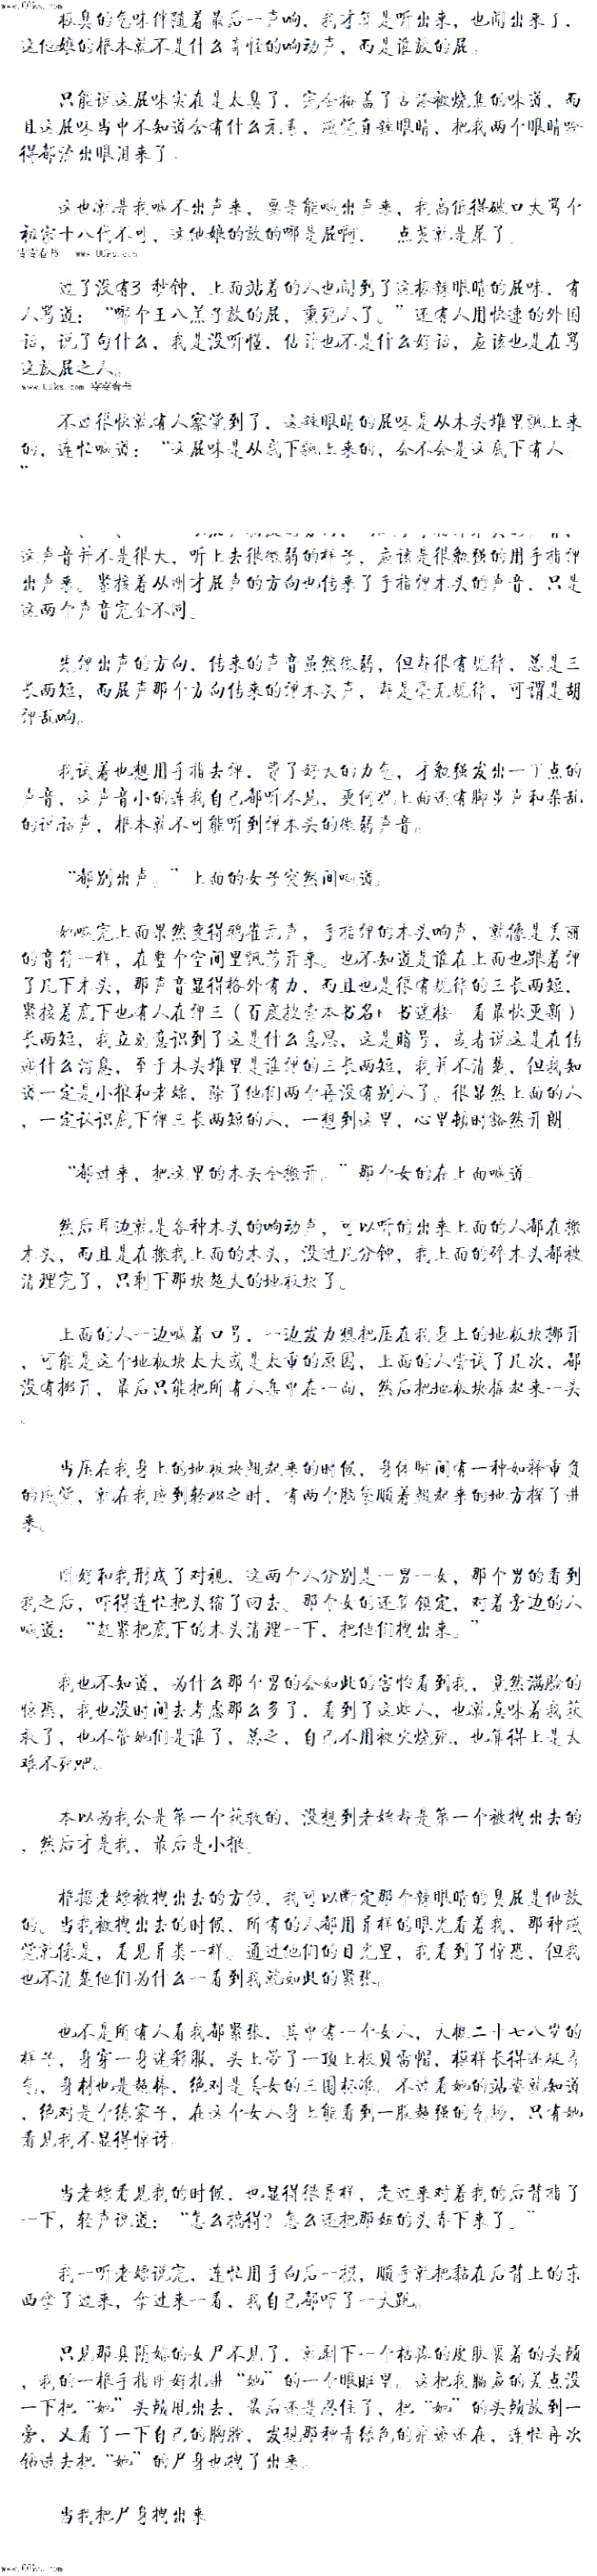 www.00ks.com
极臭的气味伴随着最后一声响，我才算是听出来，也闻出来了，
这他娘的根本就不是什么奇怪的响动声，而是谁放的屁。
只能说这屁味实在是太臭了，完全掩盖了古添被烧焦的味道，而
且这屁味当中不知道含有什么元素，感觉直辣眼睛，把我两个眼睛呛
得都流出眼泪来了。
这也就是我喊不出声来，要是能喊出声来，我高低得破口大骂个
祖宗十八代不可，这他娘的放的哪是屁啊，一点尧就是屎了。
www.00ks.com
过了没有3秒钟，上面站着的人也闻到了这极辣眼睛的屁味，有
人骂道：“哪个王八羔子放的屁，熏死人了。”还有人用快速的外国
话，说了句什么，我是没听懂，估计也不是什么好话，应该也是在骂
这放屁之人。
www.00ks.com
不过很快就有人察觉到了，这辣眼睛的屁味是从木头堆里飘上来
的，连忙喊道：“这屁味是从底下飘上来的，会不会是这底下有人
”
这声音并不是很大，听上去很微弱的样子，应该是很勉强的用手指弹
出声来。紧接着从刚才屁声的方向也传来了手指弹木头的声音，只是
这两个声音完全不同。
先弹出声的方向，传来的声音虽然微弱，但却很有规律，总是三
长两短，而屁声那个方向传来的弹木头声，却是毫无规律，可谓是胡
弹乱响。
我试着也想用手指去弹，费了好大的力气，才勉强发出一丁点的
声音，这声音小的连我自己都听不见，更何况上面还有脚步声和杂乱
的说话声，根本就不可能听到弹木头的微弱声音。
“都别出声。”上面的女子突然间喊道。
她喊完上面果然变得鸦雀无声，手指弹的木头响声，就像是美丽
的音符一样，在整个空间里飘荡开来。也不知道是谁在上面也跟着弹
了几下木头，那声音显得格外有力，而且也是很有规律的三长两短，
紧接着底下也有人在弹三（百度搜索本书名+书迷楼 看最快更新）
长两短，我立刻意识到了这是什么意思，这是暗号，或者说这是在传
递什么消息，至于木头堆里是谁弹的三长两短，我并不清楚，但我知
道一定是小根和老嫖，除了他们两个再没有别人了。很显然上面的人
，一定认识底下弹三长两短的人，一想到这里，心里顿时豁然开朗。
“都过来，把这里的木头全搬开。”那个女的在上面喊道。
然后耳边就是各种木头的响动声，可以听的出来上面的人都在搬
木头，而且是在搬我上面的木头，没过几分钟，我上面的碎木头都被
清理完了，只剩下那块超大的地板块了。
上面的人一边喊着口号，一边发力想把压在我身上的地板块挪开
，可能是这个地板块太大或是太重的原因，上面的人尝试了几次，都
没有挪开，最后只能把所有人集中在一面，然后把地板块撬起来一头
。
当压在我身上的地板块翘起来的时候，身体瞬间有一种如释重负
的感觉，就在我感到轻松之时，有两个脑袋顺着翘起来的地方探了进
来。
刚好和我形成了对视，这两个人分别是一男一女，那个男的看到
我之后，吓得连忙把头缩了回去。那个女的还算镇定，对着旁边的人
喊道：“赶紧把底下的木头清理一下，把他们拽出来。”
我也不知道，为什么那个男的会如此的害怕看到我，竟然满脸的
惊恐，我也没时间去考虑那么多了，看到了这些人，也就意味着我获
救了，也不管她们是谁了，总之，自己不用被火烧死，也算得上是大
难不死吧。
本以为我会是第一个获救的，没想到老嫖却是第一个被拽出去的
，然后才是我，最后是小根。
根据老嫖被拽出去的方位，我可以断定那个辣眼睛的臭屁是他放
的。当我被拽出去的时候，所有的人都用异样的眼光看着我，那种感
觉就像是，看见异类一样。通过他们的目光里，我看到了惊恐，但我
也不清楚他们为什么一看到我就如此的紧张。
也不是所有人看我都紧张，其中有一个女人，大概二十七八岁的
样子，身穿一身迷彩服，头上带了一顶上校贝雷帽，模样长得还挺秀
气，身材也是超棒，绝对是美女的三围标准。不过看她的站姿就知道
，绝对是个练家子，在这个女人身上能看到一股超强的气场，只有她
看见我不显得惊讶。
当老嫖看见我的时候，也显得很异样，走过来对着我的后背指了
一下，轻声说道：“怎么搞得？怎么还把那妞的头弄下来了。”
我一听老嫖说完，连忙用手向后一摸，顺手就把黏在后背上的东
西拿了过来，拿过来一看，我自己都吓了一大跳。
只见那具阴婚的女尸不见了，就剩下一个枯瘪的皮肤裹着的头颅
，我的一根手指刚好扎进“她”的一个眼眶里。这把我膈应的差点没
一下把“她”头颅甩出去，最后还是忍住了，把“她”的头颅放到一
旁，又看了一下自己的胸膛，发现那种青绿色的痕迹还在，连忙再次
钻进去把“她”的尸身也拽了出来。
当我把尸身拽出来
www.00ks.com